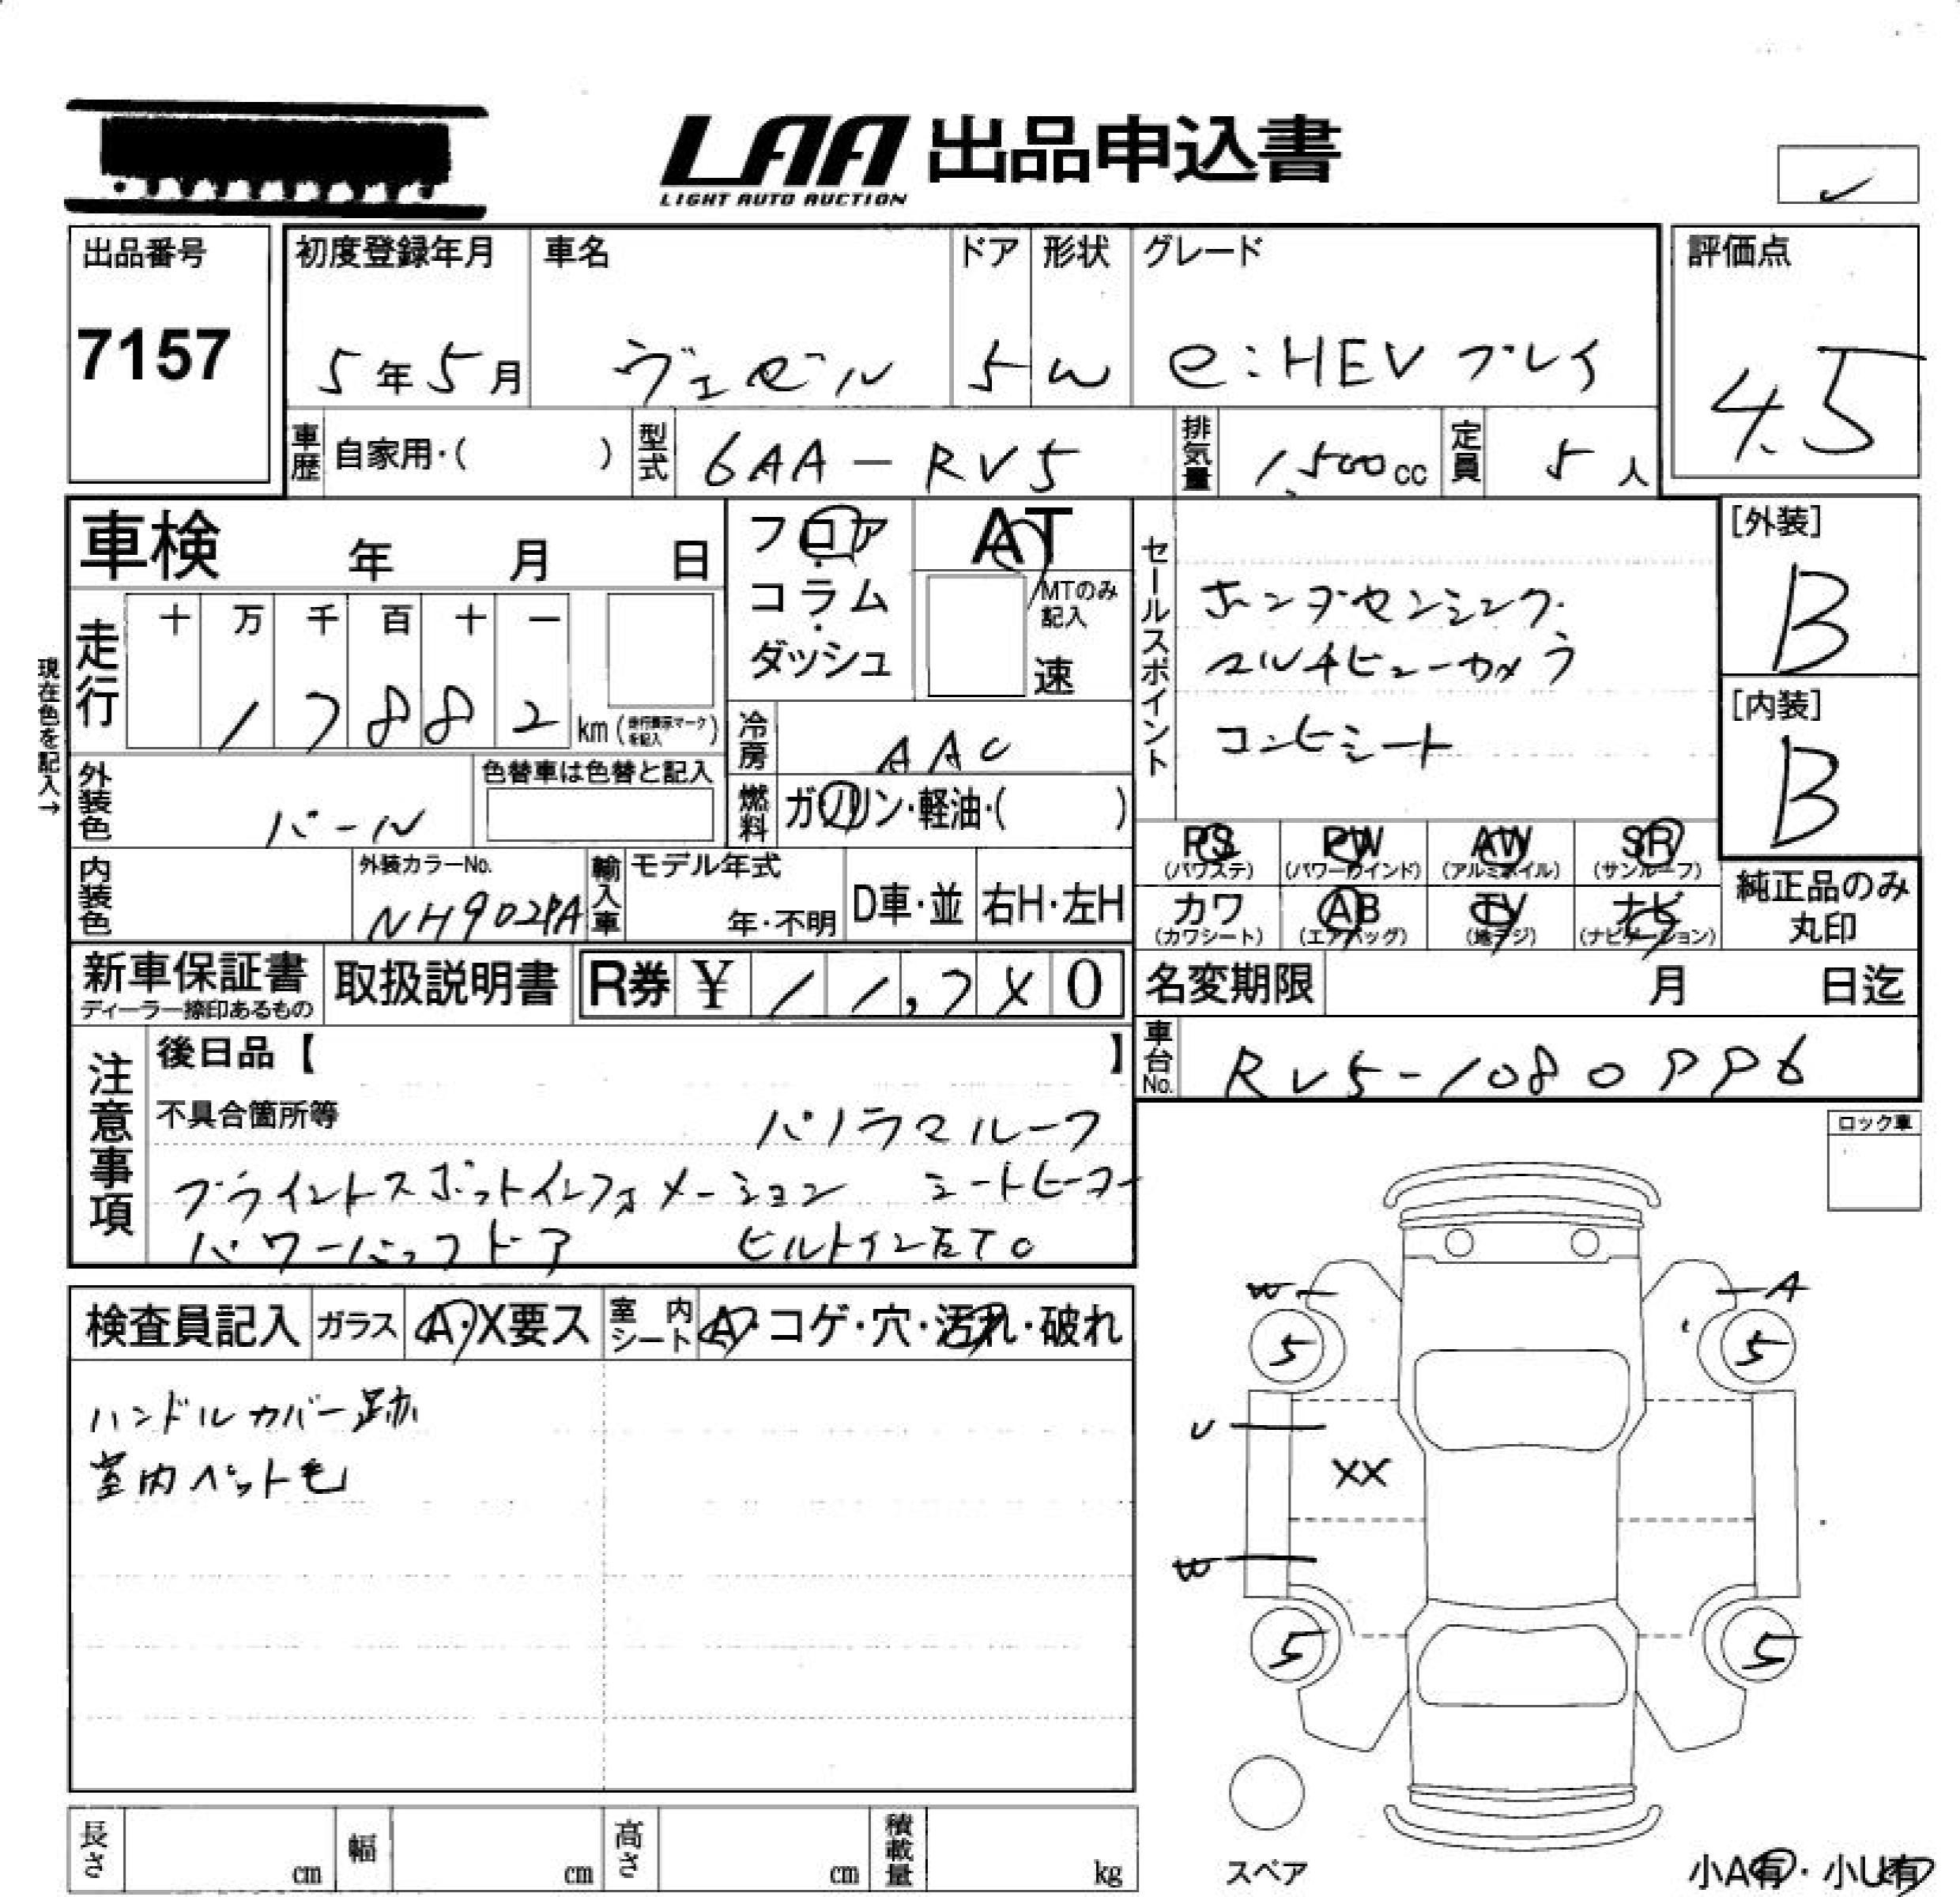 LAA 出品申込書
LIGHT AUTO AUCTION
出品番号
7157
初度登録年月
5年5月
車名
ヴェゼル
ドア
5
形状
W
グレード
e:HEV プレイ
評価点
4.5
車歴 自家用・( )
型式 6AA-RV5
排気量 1,500cc
定員 5人
車検 年 月 日
走行 十 万 千 百 十 一
17882 km (走行表示マークを記入)
現在色を記入→
フロア・コラム・ダッシュ
AT
MTのみ記入
速
冷房 AAC
燃料 ガソリン・軽油・( )
セールスポイント
ホンダセンシング
マルチビューカメラ
コンビシート
[外装]
B
[内装]
B
外装色 パール
色替車は色替と記入
内装色
外装カラーNo.
NH902PA
輸入車
モデル年式
年・不明
D車・並
右H・左H
PS (パワステ)
PW (パワーウインド)
AW (アルミホイル)
SR (サンルーフ)
カワ (カワシート)
AB (エアバッグ)
TV (地デジ)
ナビ (ナビゲーション)
純正品のみ丸印
新車保証書
ディーラー捺印あるもの
取扱説明書
R券 ¥ 11,7X0
名変期限 月 日迄
車台No. RV5-1080996
注意事項
後日品【 】
不具合箇所等
パノラマルーフ
ブラインドスポットインフォメーション シートヒーター
パワーバックドア ビルトインETC
ロック車
検査員記入
ガラス A・X要ス
室内シート A・コゲ・穴・汚れ・破れ
ハンドルカバー跡
室内ペット毛
W
A
5
5
U
XX
W
5
5
スペア
小A有・小U有
長さ cm
幅 cm
高さ cm
積載量 kg